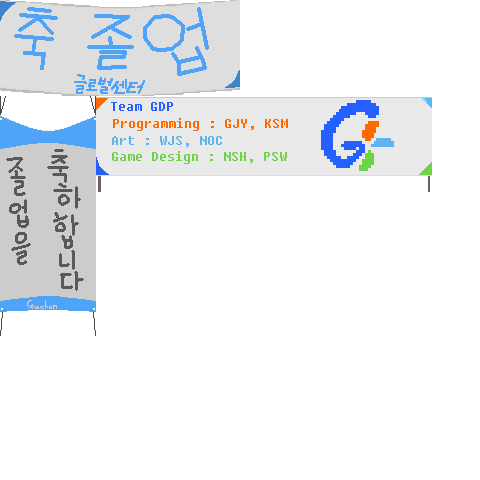 축 졸업
글로벌센터
Team GDP
Programming : GJY, KSM
Art : WJS, NOC
Game Design : NSH, PSW
졸업을
축하합니다
Gachon